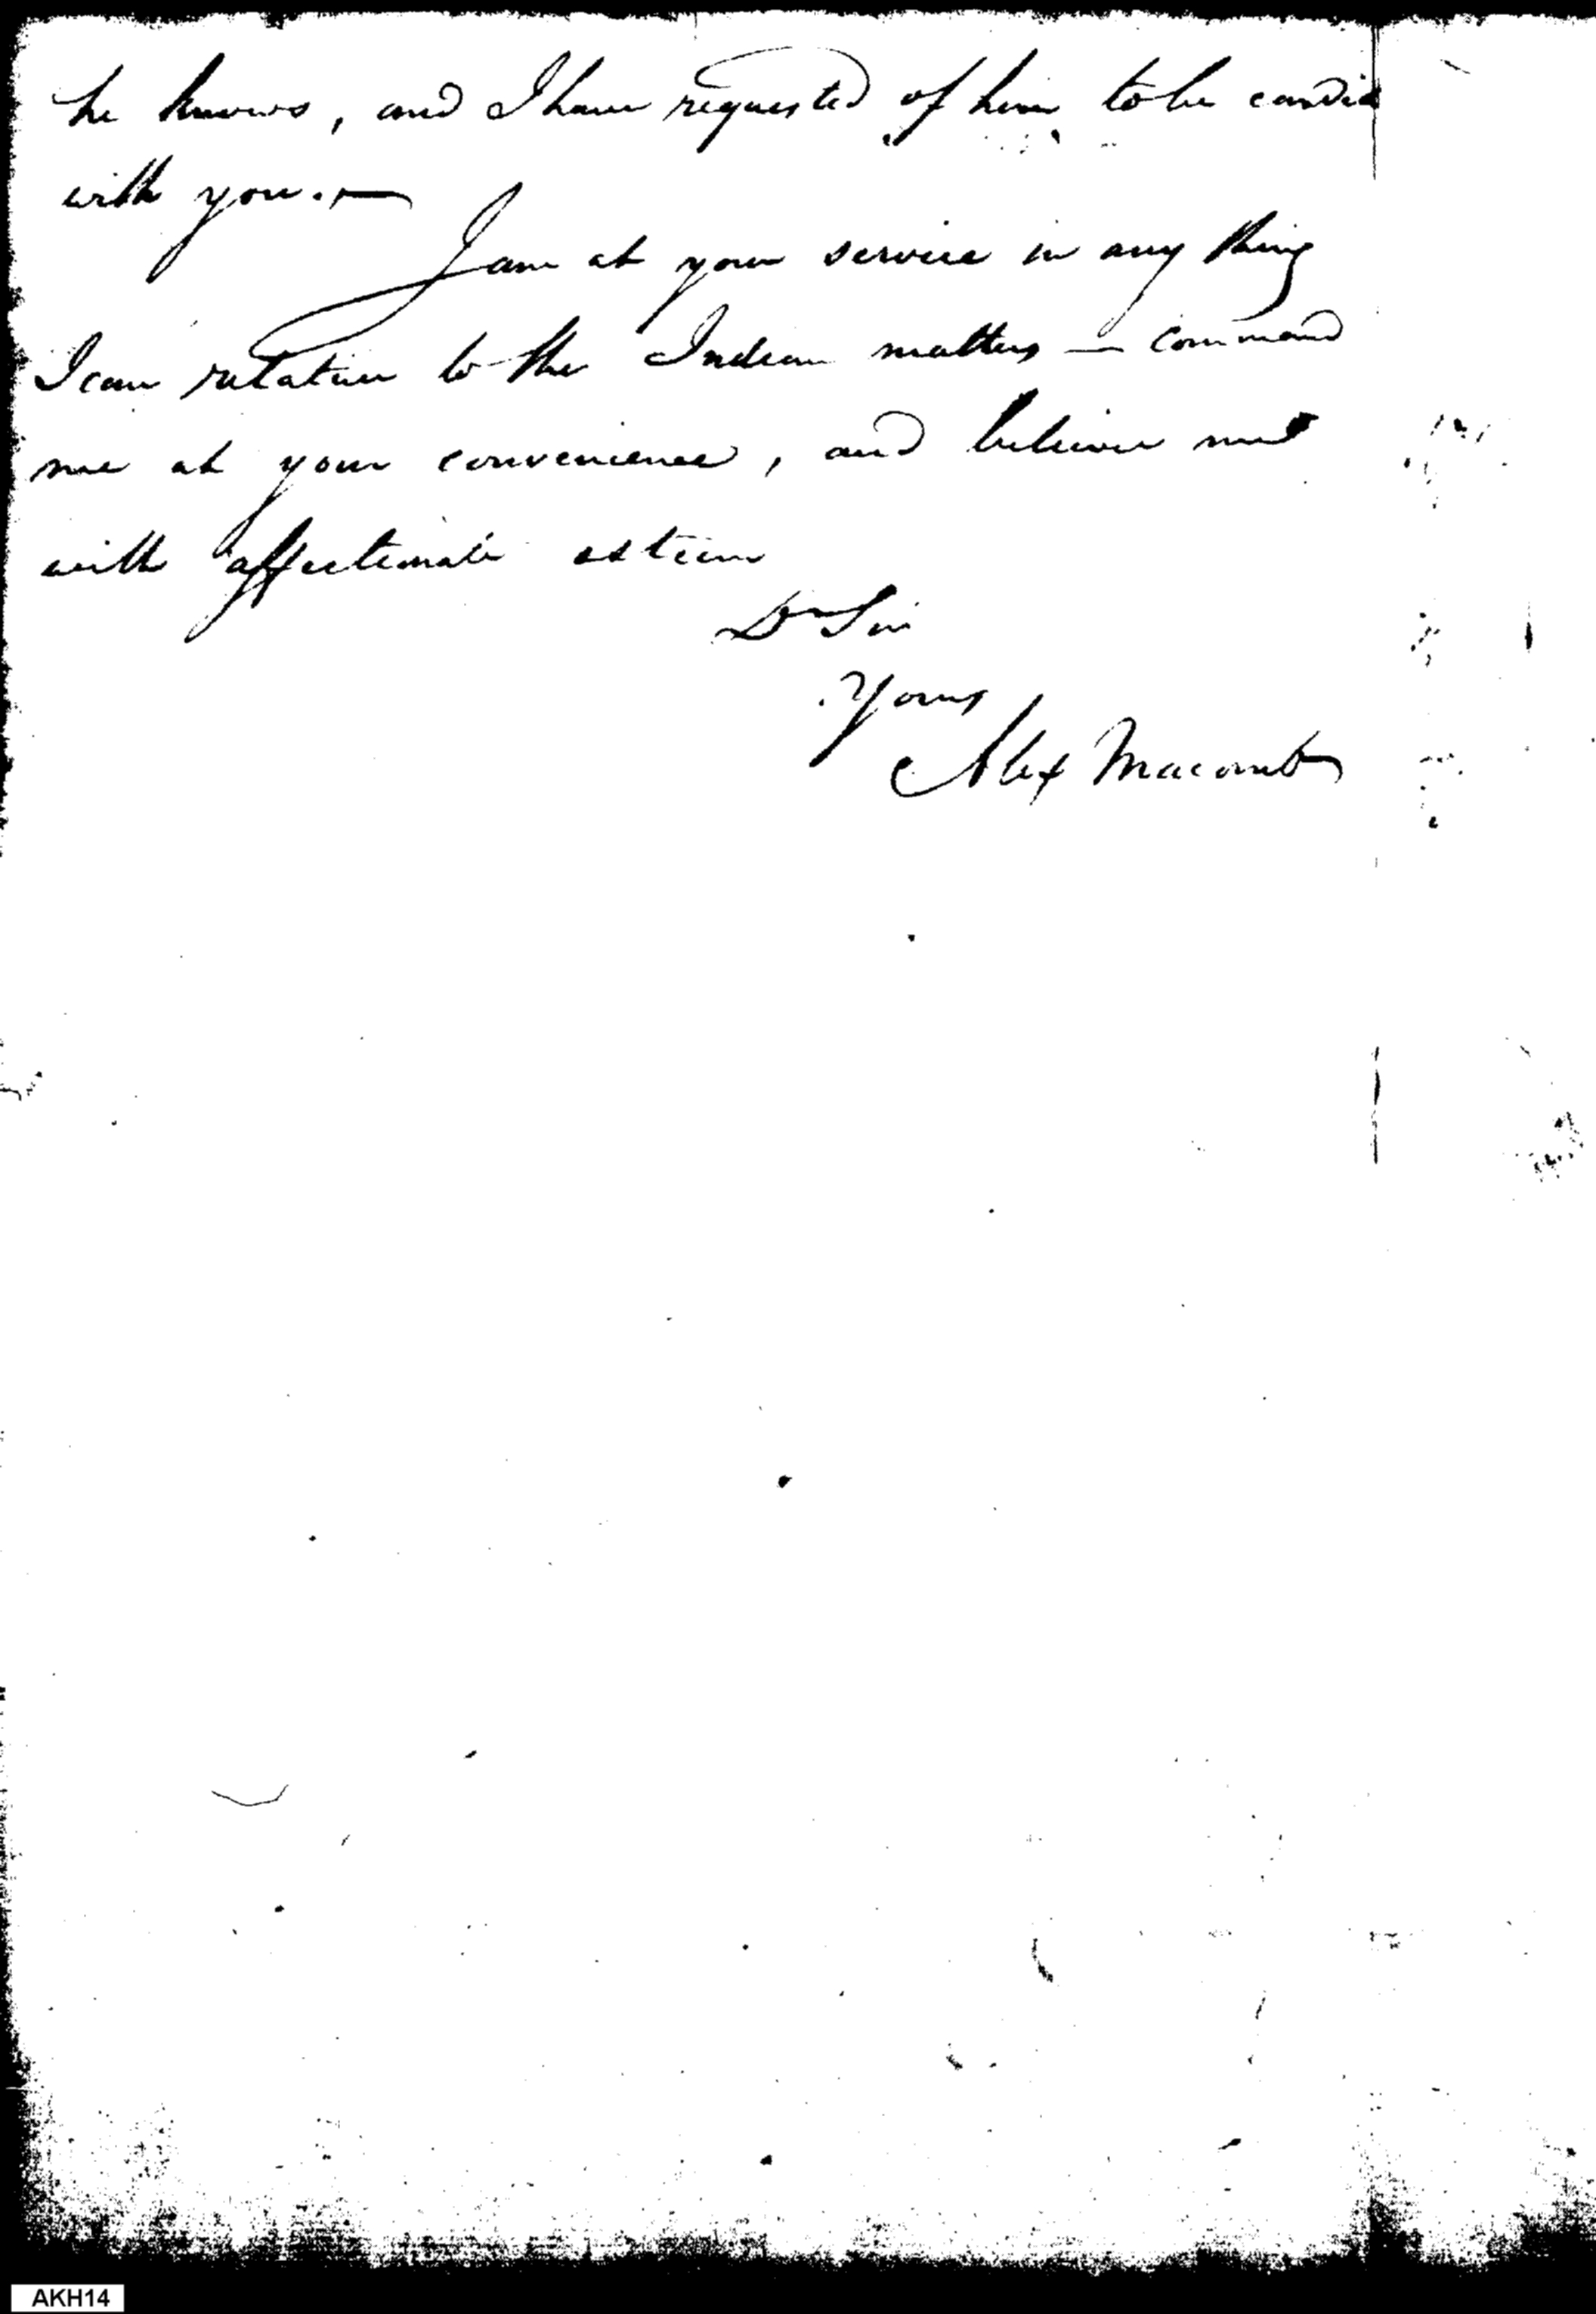 he knows, and I have requested of him to be candid
with you. —
I am at your service in any thing
I can relative to the Indian matters — command
me at your convenience, and believe me
with affectionate esteem
Dr Sir
Yours
Alex Macomb
AKH14